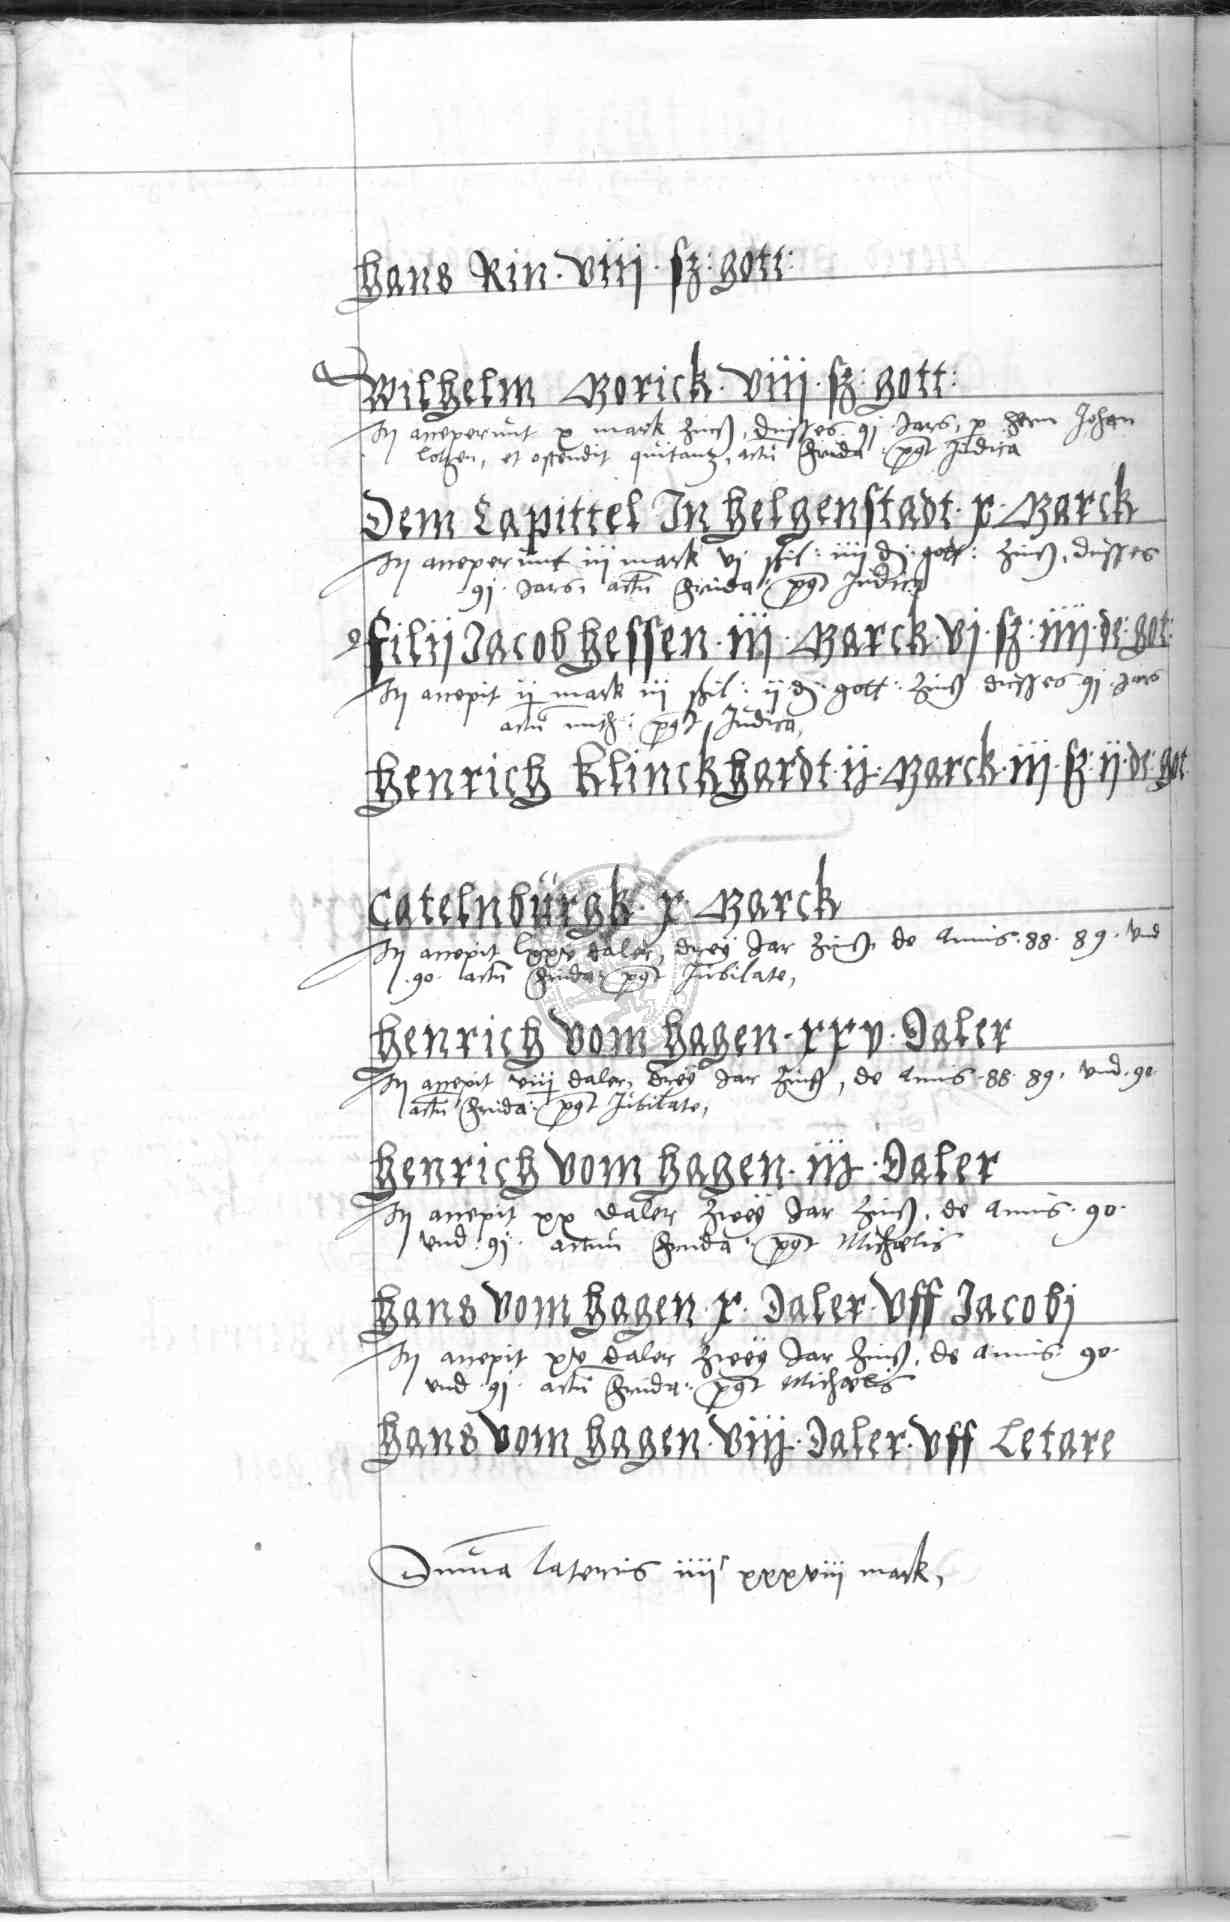 Hans Rin · viii · sz: gott:
Wilhelm Borick · viii · sz: gott:
Hij acceperunt x mark Zinß, dusses 91 Jars, p hern Johan
lotzen, et ostendit quitantz, actu frida: pqt Judica
Dem Capittel In Helgenstadt · x · Marck
Hij acceperunt iij mark vj schil: iiij d: gott: Zinß, dusses
91 · Jars, actu frida: pqt Judica
Filij Jacob Hessen · iij · Marck · vj · sz: iiij · de: got:
Hij accepit ij mark iij schil: ij d: gott: Zinß dusses 91 Jars
actu mith: pqt Judica,
Henrich Klinckhardt · ij · Marck · iij · sz · ij · de: got
Catelnburgk · x · Marck
Hij accepit lxxv daler, drey Jar Zinß, de Annis · 88 · 89 · vnd
· 90 · actu frida: pqt Jubilate,
Henrich vom Hagen · xxv · Daler
Hij accepit viij daler, drey Jar Zinß, de Annis · 88 · 89 · vnd · 90 ·
actu frida: pqt Jubilate,
Henrich vom Hagen · iij · Daler
Hij accepit xx daler zwey Jar Zinß, de Annis · 90 ·
vnd · 91 · actum frida: pqt Michaelis
Hans vom Hagen · x · Daler · vff Jacobj
Hij accepit xv daler zwey Jar Zinß, de Annis · 90 ·
vnd · 91 · actu frida: pqt Michaelis
Hans vom Hagen · viij · Daler · vff Letare
Suma lateris iiii xxxviii mark,